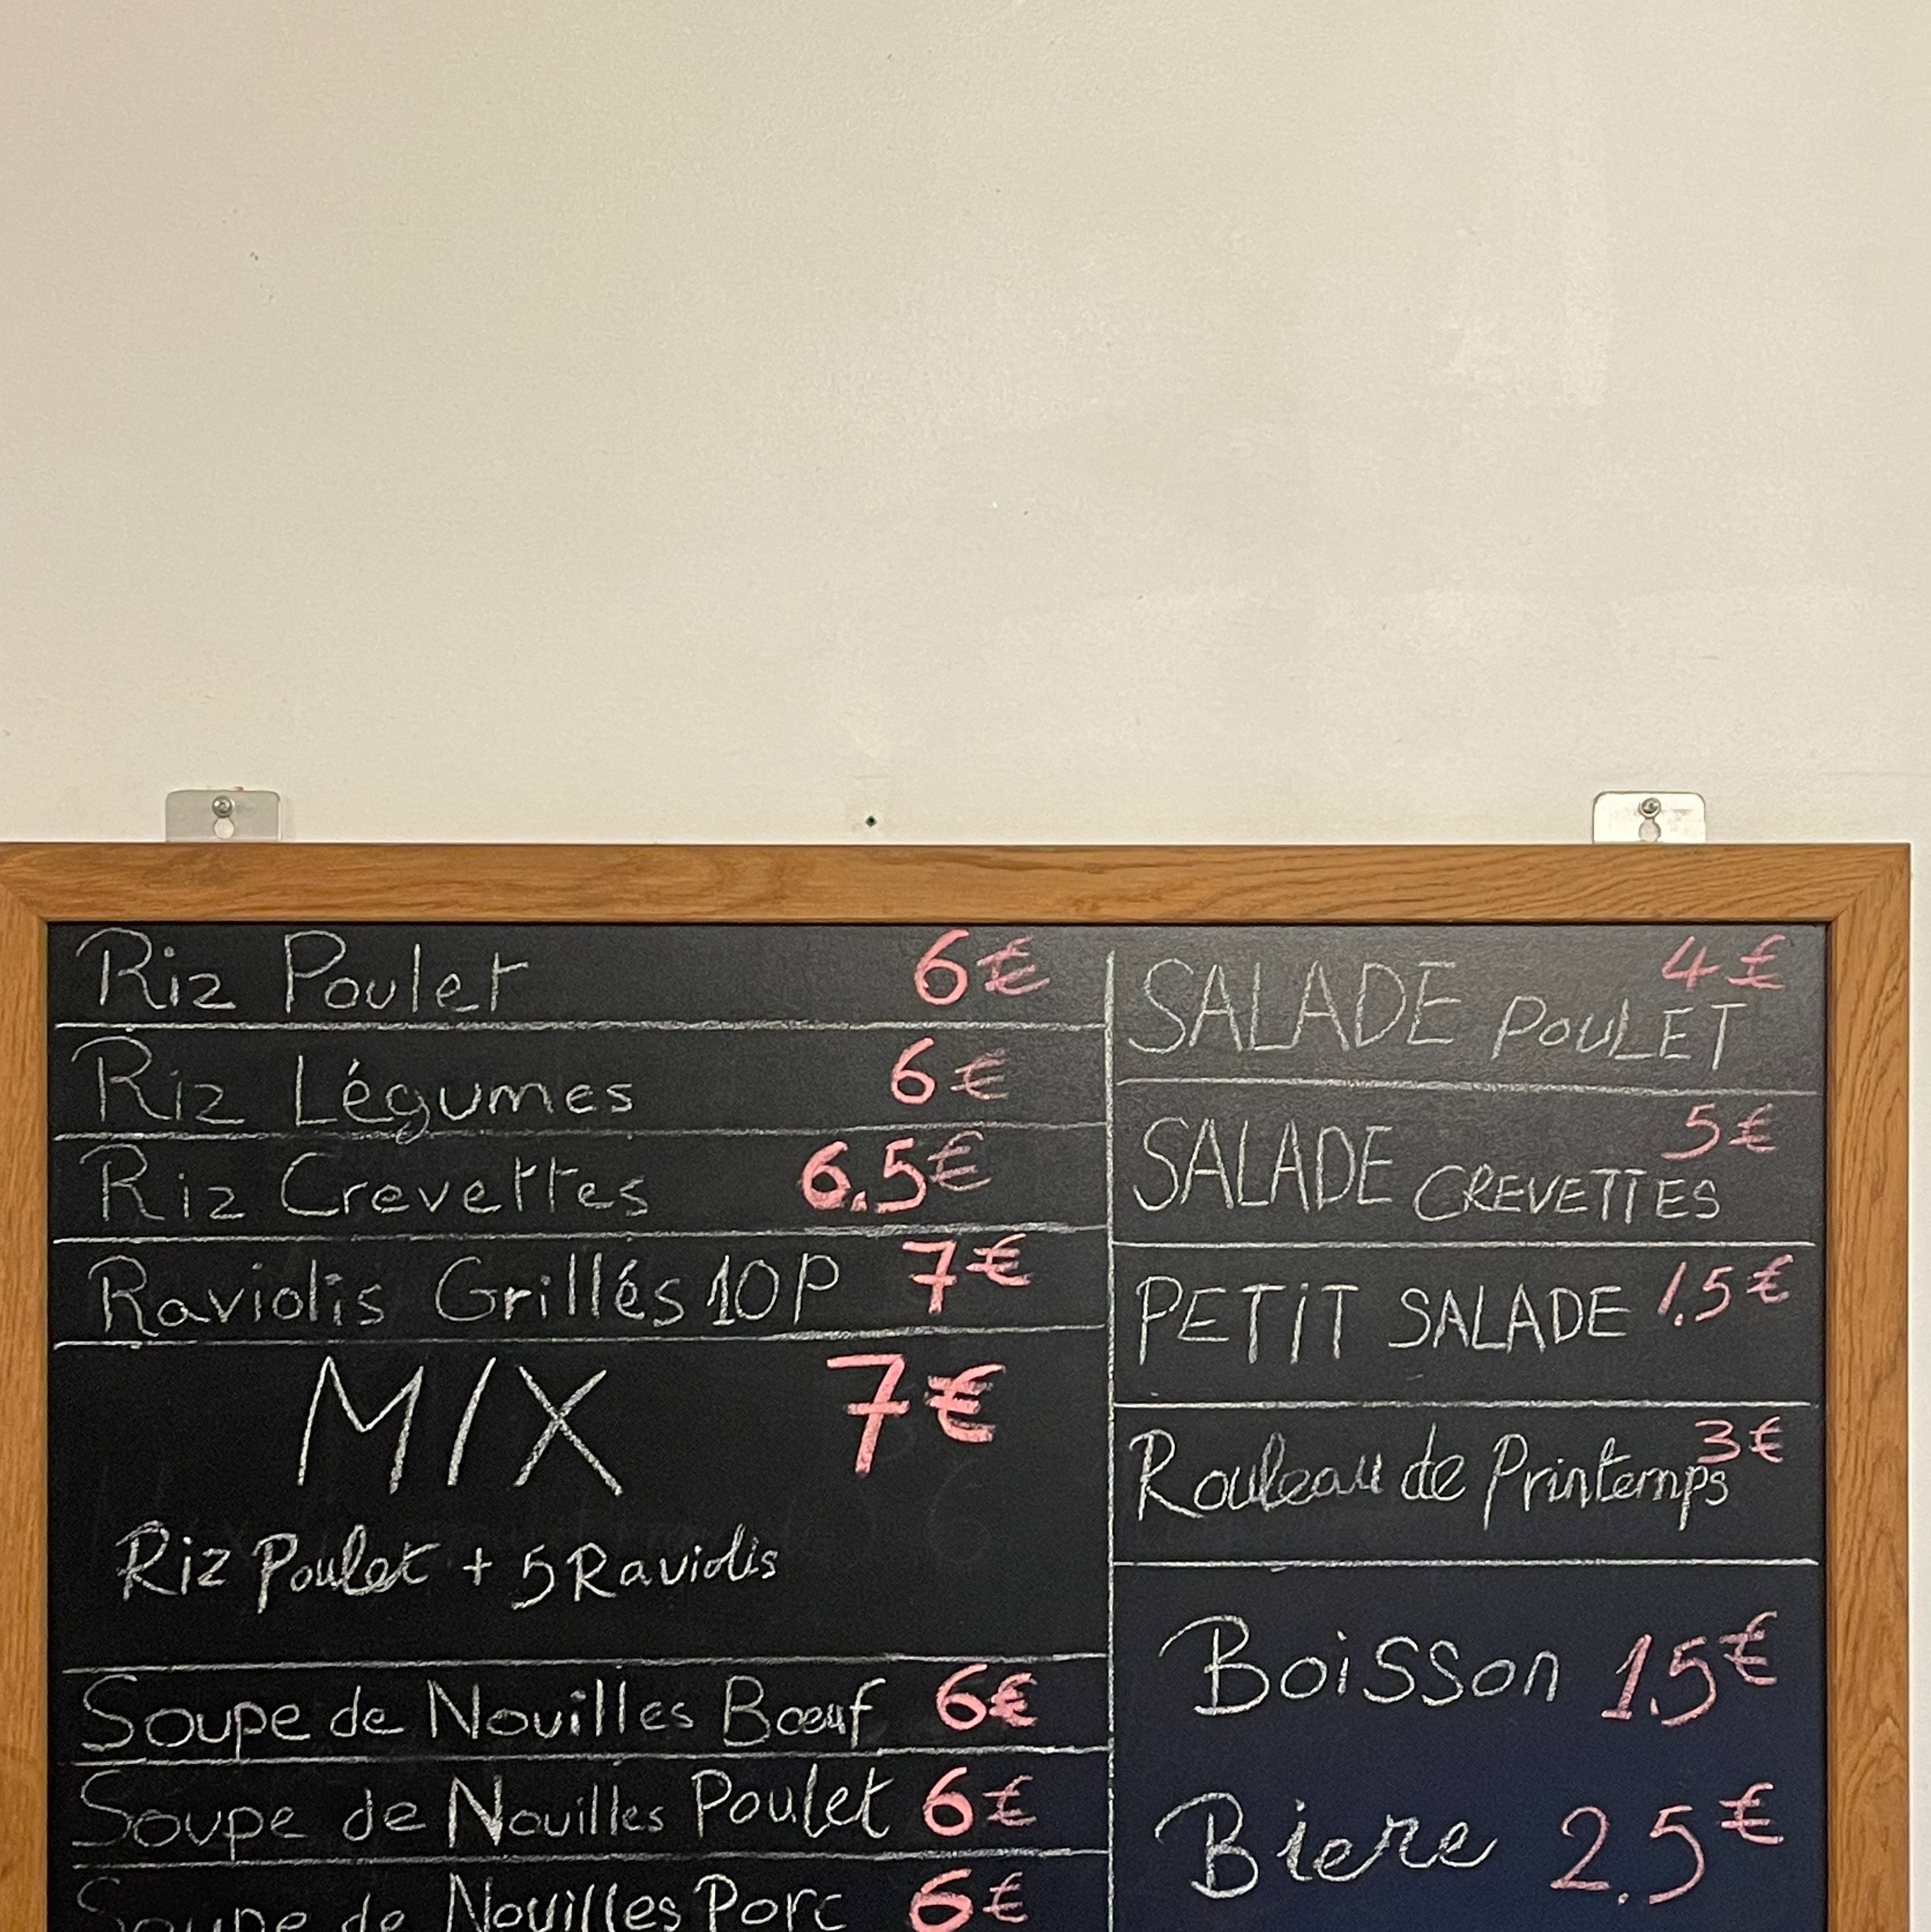 Riz Poulet 6€
Riz Légumes 6€
Riz Crevettes 6.5€
Raviolis Grillés 10P 7€
MIX 7€
Riz Poulet + 5 Raviolis
Soupe de Nouilles Bœuf 6€
Soupe de Nouilles Poulet 6€
Soupe de Nouilles Porc 6€
SALADE POULET 4€
SALADE CREVETTES 5€
PETIT SALADE 1.5€
Rouleau de Printemps 3€
Boisson 1.5€
Biere 2.5€